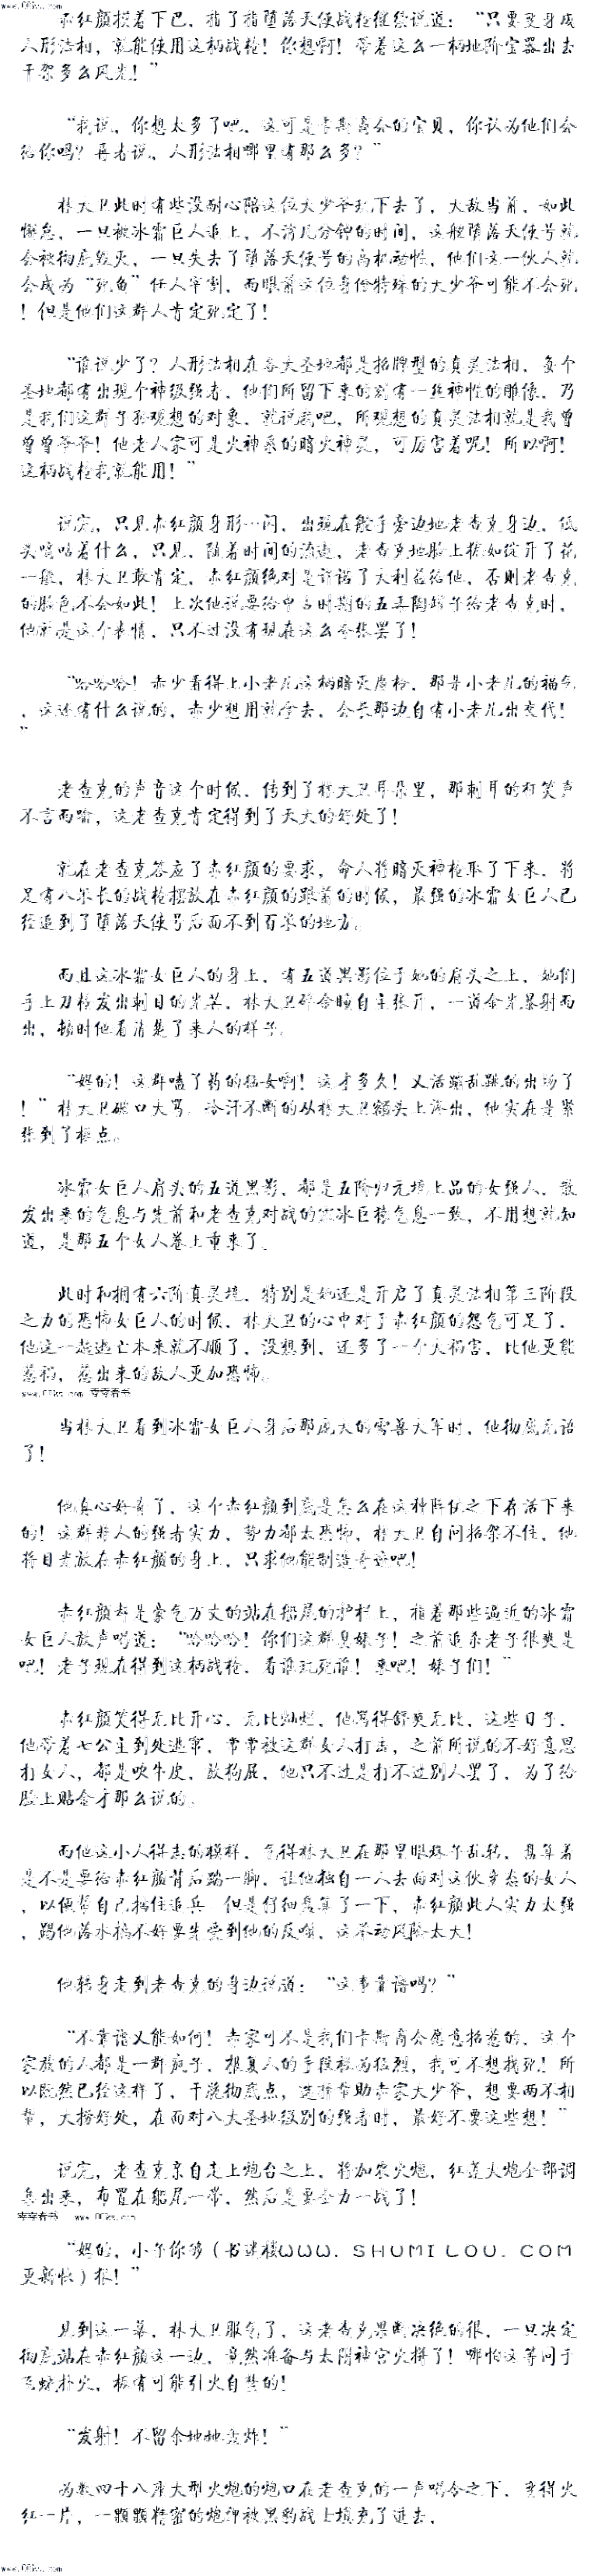 www.00ks.com
赤红颜摸着下巴，指了指堕落天使战枪继续说道：“只要变身成
人形法相，就能使用这柄战枪！你想啊！带着这么一柄地阶宝器出去
干架多么风光！”
“我说，你想太多了吧，这可是卡斯商会的宝贝，你认为他们会
给你吗？再者说，人形法相哪里有那么多？”
林大卫此时有些没耐心陪这位大少爷玩下去了，大敌当前，如此
懈怠，一旦被冰霜巨人追上，不消几分钟的时间，这艘堕落天使号就
会被彻底毁灭，一旦失去了堕落天使号的高机动性，他们这一伙人就
会成为“死鱼”任人宰割，而眼前这位身份特殊的大少爷可能不会死
！但是他们这群人肯定死定了！
“谁说少了？人形法相在各大圣地都是招牌型的真灵法相，每个
圣地都有出现个神级强者，他们所留下来的刻有一丝神性的雕像，乃
是我们这群子孙观想的对象，就说我吧，所观想的真灵法相就是我曾
曾曾爷爷！他老人家可是火神系的暗火神灵，可厉害着呢！所以啊！
这柄战枪我就能用！”
说完，只见赤红颜身形一闪，出现在舵手旁边地老查克身边，低
头嘀咕着什么，只见，随着时间的流逝，老查克地脸上犹如绽开了花
一般，林大卫敢肯定，赤红颜绝对是许诺了大利益给他，否则老查克
的脸色不会如此！上次他说要给中古时期的五弄陶罐子给老查克时，
他就是这个表情，只不过没有现在这么夸张罢了！
“哈哈哈！赤少看得上小老儿这柄暗灭魔枪，那是小老儿的福气
，这还有什么说的，赤少想用就拿去，会长那边自有小老儿出交代！
”
老查克的声音这个时候，传到了林大卫耳朵里，那刺耳的奸笑声
不言而喻，这老查克肯定得到了天大的好处了！
就在老查克答应了赤红颜的要求，命人将暗灭神枪取了下来，将
足有八米长的战枪摆放在赤红颜的跟前的时候，最强的冰霜女巨人已
经追到了堕落天使号后面不到百米的地方。
而且这冰霜女巨人的身上，有五道黑影位于她的肩头之上，她们
手上刀枪发出刺目的光芒，林大卫碎金瞳自主张开，一道金光暴射而
出，顿时他看清楚了来人的样子。
“妈的！这群嗑了药的猛女啊！这才多久！又活蹦乱跳的出场了
！”林大卫破口大骂，冷汗不断的从林大卫额头上渗出，他实在是紧
张到了极点。
冰霜女巨人肩头的五道黑影，都是五阶归元境上品的女强人，散
发出来的气息与先前和老查克对战的玄冰巨猿气息一致，不用想就知
道，是那五个女人卷土重来了。
此时和拥有六阶真灵境，特别是她还是开启了真灵法相第三阶段
之力的恐怖女巨人的时候，林大卫的心中对于赤红颜的怨气可足了，
他这一趟逃亡本来就不顺了，没想到，还多了一个大祸害，比他更能
惹祸，惹出来的敌人更加恐怖。
www.00ks.com 零零看书
当林大卫看到冰霜女巨人身后那庞大的雪兽大军时，他彻底无语
了！
他真心好奇了，这个赤红颜到底是怎么在这种阵仗之下存活下来
的！这群非人的强者实力，势力都太恐怖，林大卫自问招架不住，他
将目光放在赤红颜的身上，只求他能制造奇迹吧！
赤红颜却是豪气万丈的站在船尾的护栏上，指着那些逼近的冰霜
女巨人放声喝道：“哈哈哈！你们这群臭婊子！之前追杀老子很爽是
吧！老子现在得到这柄战枪，看谁玩死谁！来吧！婊子们！”
赤红颜笑得无比开心，无比灿烂，他骂得舒爽无比，这些日子，
他带着七公主到处逃窜，常常被这群女人打击，之前所说的不好意思
打女人，都是吹牛皮，放狗屁，他只不过是打不过别人罢了，为了给
脸上贴金才那么说的。
而他这小人得志的模样，气得林大卫在那里眼珠子乱转，盘算着
是不是要给赤红颜背后踹一脚，让他独自一人去面对这伙变态的女人
，以便帮自己挡住追兵，但是仔细盘算了一下，赤红颜此人实力太强
，踢他落水搞不好要先受到他的反噬，这举动风险太大！
他转身走到老查克的身边说道：“这事靠谱吗？”
“不靠谱又能如何！赤家可不是我们卡斯商会愿意招惹的，这个
家族的人都是一群疯子，报复人的手段极为猛烈，我可不想找死！所
以既然已经这样了，干脆彻底点，选择帮助赤家大少爷，想要两不相
帮，大捞好处，在面对八大圣地级别的强者时，最好不要这些想！”
说完，老查克亲自走上炮台之上，将加农火炮，红莲大炮全部调
集出来，布置在船尾一带，然后是要全力一战了！
零零看书 www.00ks.com
“妈的，小子你够（书迷楼ＷＷＷ．ＳＨＵＭＩＬＯＵ．ＣＯＭ
更新快）狠！”
见到这一幕，林大卫服气了，这老查克果断决绝的很，一旦决定
彻底站在赤红颜这一边，竟然准备与太阴神宫火拼了！哪怕这等同于
飞蛾扑火，极有可能引火自焚的！
“发射！不留余地地轰炸！”
为数四十八座大型火炮的炮口在老查克的一声喝令之下，变得火
红一片，一颗颗精密的炮弹被黑豹战士填充了进去，
www.00ks.com